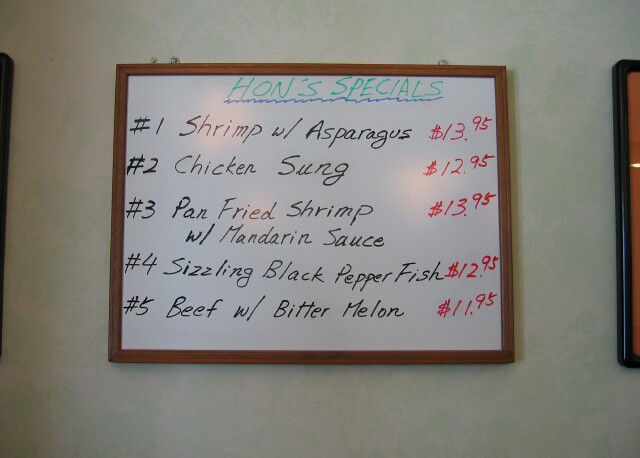 HON'S SPECIALS
#1 Shrimp w/ Asparagus $13.95
#2 Chicken Sung $12.95
#3 Pan Fried Shrimp $13.95
w/ Mandarin Sauce
#4 Sizzling Black Pepper Fish $12.95
#5 Beef w/ Bitter Melon $11.95